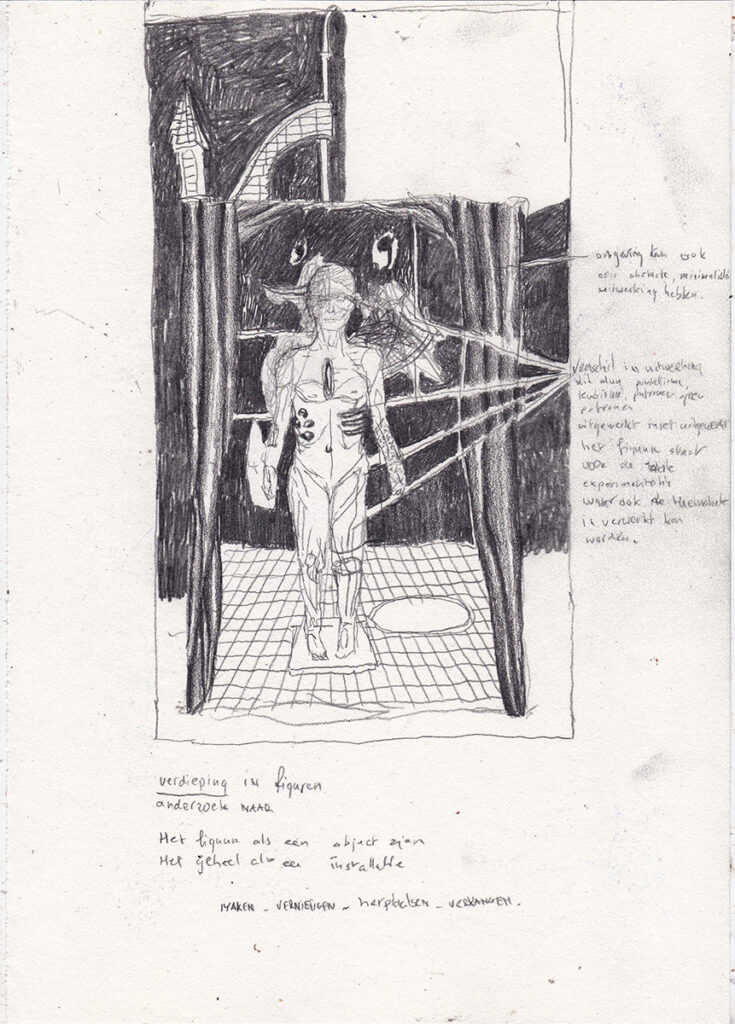 omgeving kan ook
een abstracte, minimalistische
uitwerking hebben.
Verschil in uitwerking
patronen geen
patronen
uitgewerkt niet uitgewerkt
het figuur staat
voor de
experimentatie
waar ook de
in verwerkt kan
worden.
verdieping in figuren
onderzoek NAAR
Het figuur als een object zien
Het geheel als een installatie
MAKEN - VERNIETIGEN - herplaatsen - VERVANGEN.